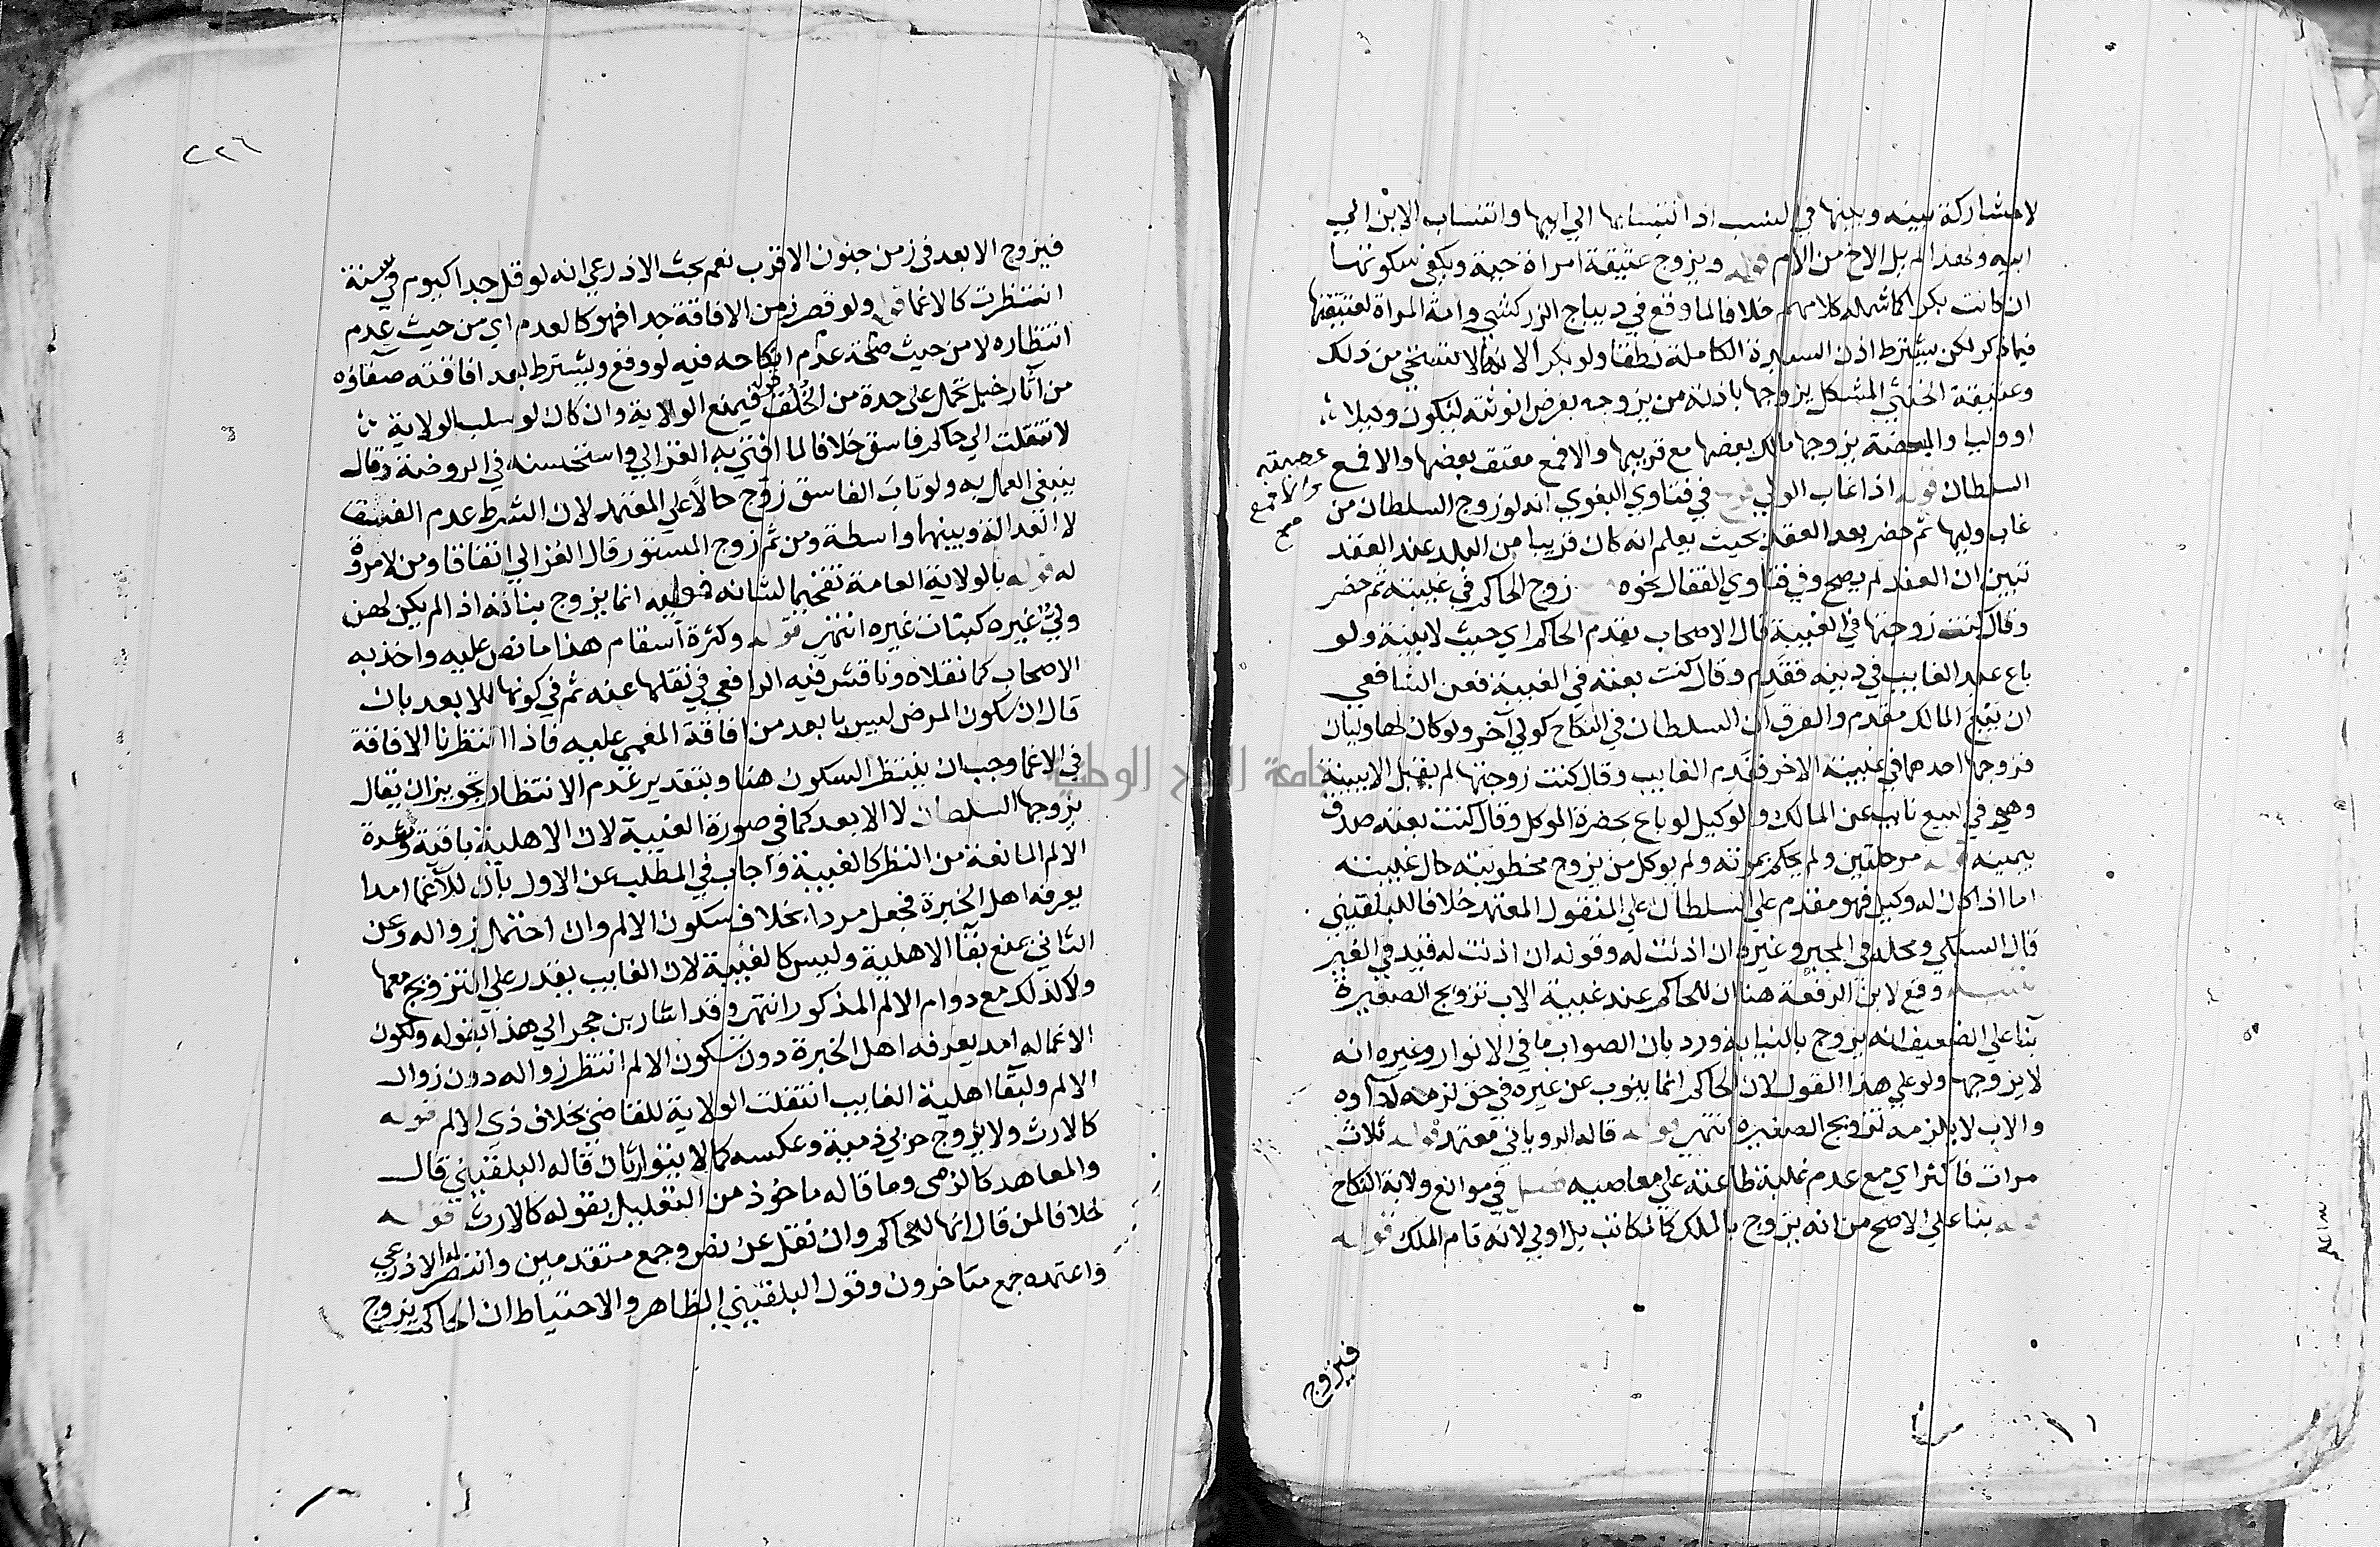 لا مشاركة بينه وبينها في النسب اذ انتسابها الي ابيها وانتساب الابن الي
ابيه ولهذا لم يل الاخ من الام قوله ويزوج عتيقة امراة حية ويكفي سكوتها
ان كانت بكرا كما شمله كلامهم خلافا لما وقع في ديباج الزركشي وامة المراة لعتيقتها
فيما ذكر لكن يشترط اذن السيدة الكاملة نطقا ولو بكرا لانها لا تستحي من ذلك
وعتيقة الخنثي المشكل يزوجها باذنه من يزوجه بفرض انوثته ليكون وكيلا
او وليا والمبعضة يزوجها مالك بعضها مع قريبها والا فمع معتق بعضها والا فمع
عصبته
والا فمع
صح
السلطان قوله اذا غاب الولي فرع في فتاوي البغوي انه لو زوج السلطان من
غاب وليها ثم حضر بعد العقد بحيث يعلم انه كان قريبا من البلد عند العقد
تبين ان العقد لم يصح وفي فتاوي القفال نحوه زوج الحاكم في غيبته ثم حضر
وقال كنت زوجتها في الغيبة قال الاصحاب يقدم الحاكم اي حيث لا بينة ولو
باع عبد الغايب في دينه فقدم وقال كنت بعته في الغيبة فعن الشافعي
ان بيع المالك مقدم والفرق ان السلطان في النكاح كولي آخر ولو كان لها وليان
فزوجها احدهما في غيبة الاخر فقدم الغايب وقال كنت زوجتها لم يقبل الا ببينة
وهو في البيع نايب عن المالك والوكيل لو باع بحضرة الموكل وقال كنت بعته صدق
بيمينه قوله مرحلتين ولم يحكم بموته ولم يوكل من يزوج مخطوبته حال غيبته
اما اذا كان له وكيل فهو مقدم علي السلطان علي المنقول المعتمد خلافا للبلقيني
قال السبكي ومحله في المجبر وغيره ان اذنت له وقوله ان اذنت له قيد في الغير
تنبيه وقع لابن الرفعة هنا ان للحاكم عند غيبة الاب تزويج الصغيرة
بنا علي الضعيف انه يزوج بالنيابة ورد بان الصواب ما في الانوار وغيره انه
لا يزوجها ولو علي هذا القول لان الحاكم انما ينوب عن غيره في حق لزمه اداوه
والاب لا يلزمه تزويج الصغيرة انتهي قوله قاله الروياني معتمد قوله ثلاث
مرات فاكثر اي مع عدم غلبة طاعته علي معاصيه فصل في موانع ولاية النكاح
قوله بنا علي الاصح من انه يزوج بالملك كالمكاتب بل اولي لانه تام الملك قوله
فيزوج
٢٢٦
فيزوج الابعد في زمن جنون الاقرب نعم بحث الاذرعي انه لو قل جدا كيوم في سنة
انتظرت كالاغما قوله ولو قصر زمن الافاقة جدا فهو كالعدم اي من حيث عدم
انتظاره لا من حيث صحة عدم انكاحه فيه لو وقع ويشترط بعد افاقته صفاؤه
من آثار خبل تحمل علي حدة من الخلق قوله فيمنع الولاية وان كان لو سلب الولاية
لانتقلت الي حاكم فاسق خلافا لما افتي به الغزالي واستحسنه في الروضة وقال
ينبغي العمل به ولو تاب الفاسق زوج حالا علي المعتمد لان الشرط عدم الفسق
لا العدالة وبينهما واسطة ومن ثم زوج المستور قال الغزالي اتفاقا ومن لا مروة
له قوله بالولاية العامة تفخيما لشانه فعليه انما يزوج بناته اذا لم يكن لهن
ولي غيره كبنات غيره انتهي قوله وكثرة اسقام هذا ما نص عليه واخذ به
الاصحاب كما نقلاه وناقش فيه الرافعي في نقلها عنه ثم في كونها للابعد بان
قال ان سكون المرض ليس بابعد من افاقة المغمي عليه فاذا انتظرنا الافاقة
في الاغما وجب ان ينتظر السكون هنا وبتقدير عدم الانتظار يجوز ان يقال
يزوجها السلطان لا الابعد كما في صورة الغيبة لان الاهلية باقية وشدة
الالم المانعة من النظر كالغيبة واجاب في المطلب عن الاول بان للاغما امدا
يعرفه اهل الخبرة فجعل مردا بخلاف سكون الالم وان احتمل زواله وعن
الثاني بمنع بقآ الاهلية وليس كالغيبة لان الغايب يقدر علي التزويج معها
ولا كذلك مع دوام الالم المذكور انتهي وقد اشار بن حجر الي هذا بقوله ولكون
الاغما له امد يعرفه اهل الخبرة دون سكون الالم انتظر زواله دون زوال
الالم ولبقآ اهلية الغايب انتقلت الولاية للقاضي بخلاف ذي الالم قوله
كالارث ولا يزوج حربي ذمية وعكسه كما لا يتوارثان قاله البلقيني قال
والمعاهد كالذمي وما قاله ماخوذ من التعليل بقوله كالارث قوله
خلافا لمن قال انها للحاكم وان نقل عن نص وجمع متقدمين وانتصر له الاذرعي
واعتمده جمع متاخرون وقول البلقيني الظاهر والاحتياط ان الحاكم يزوج
جامعة النجاح الوطنية